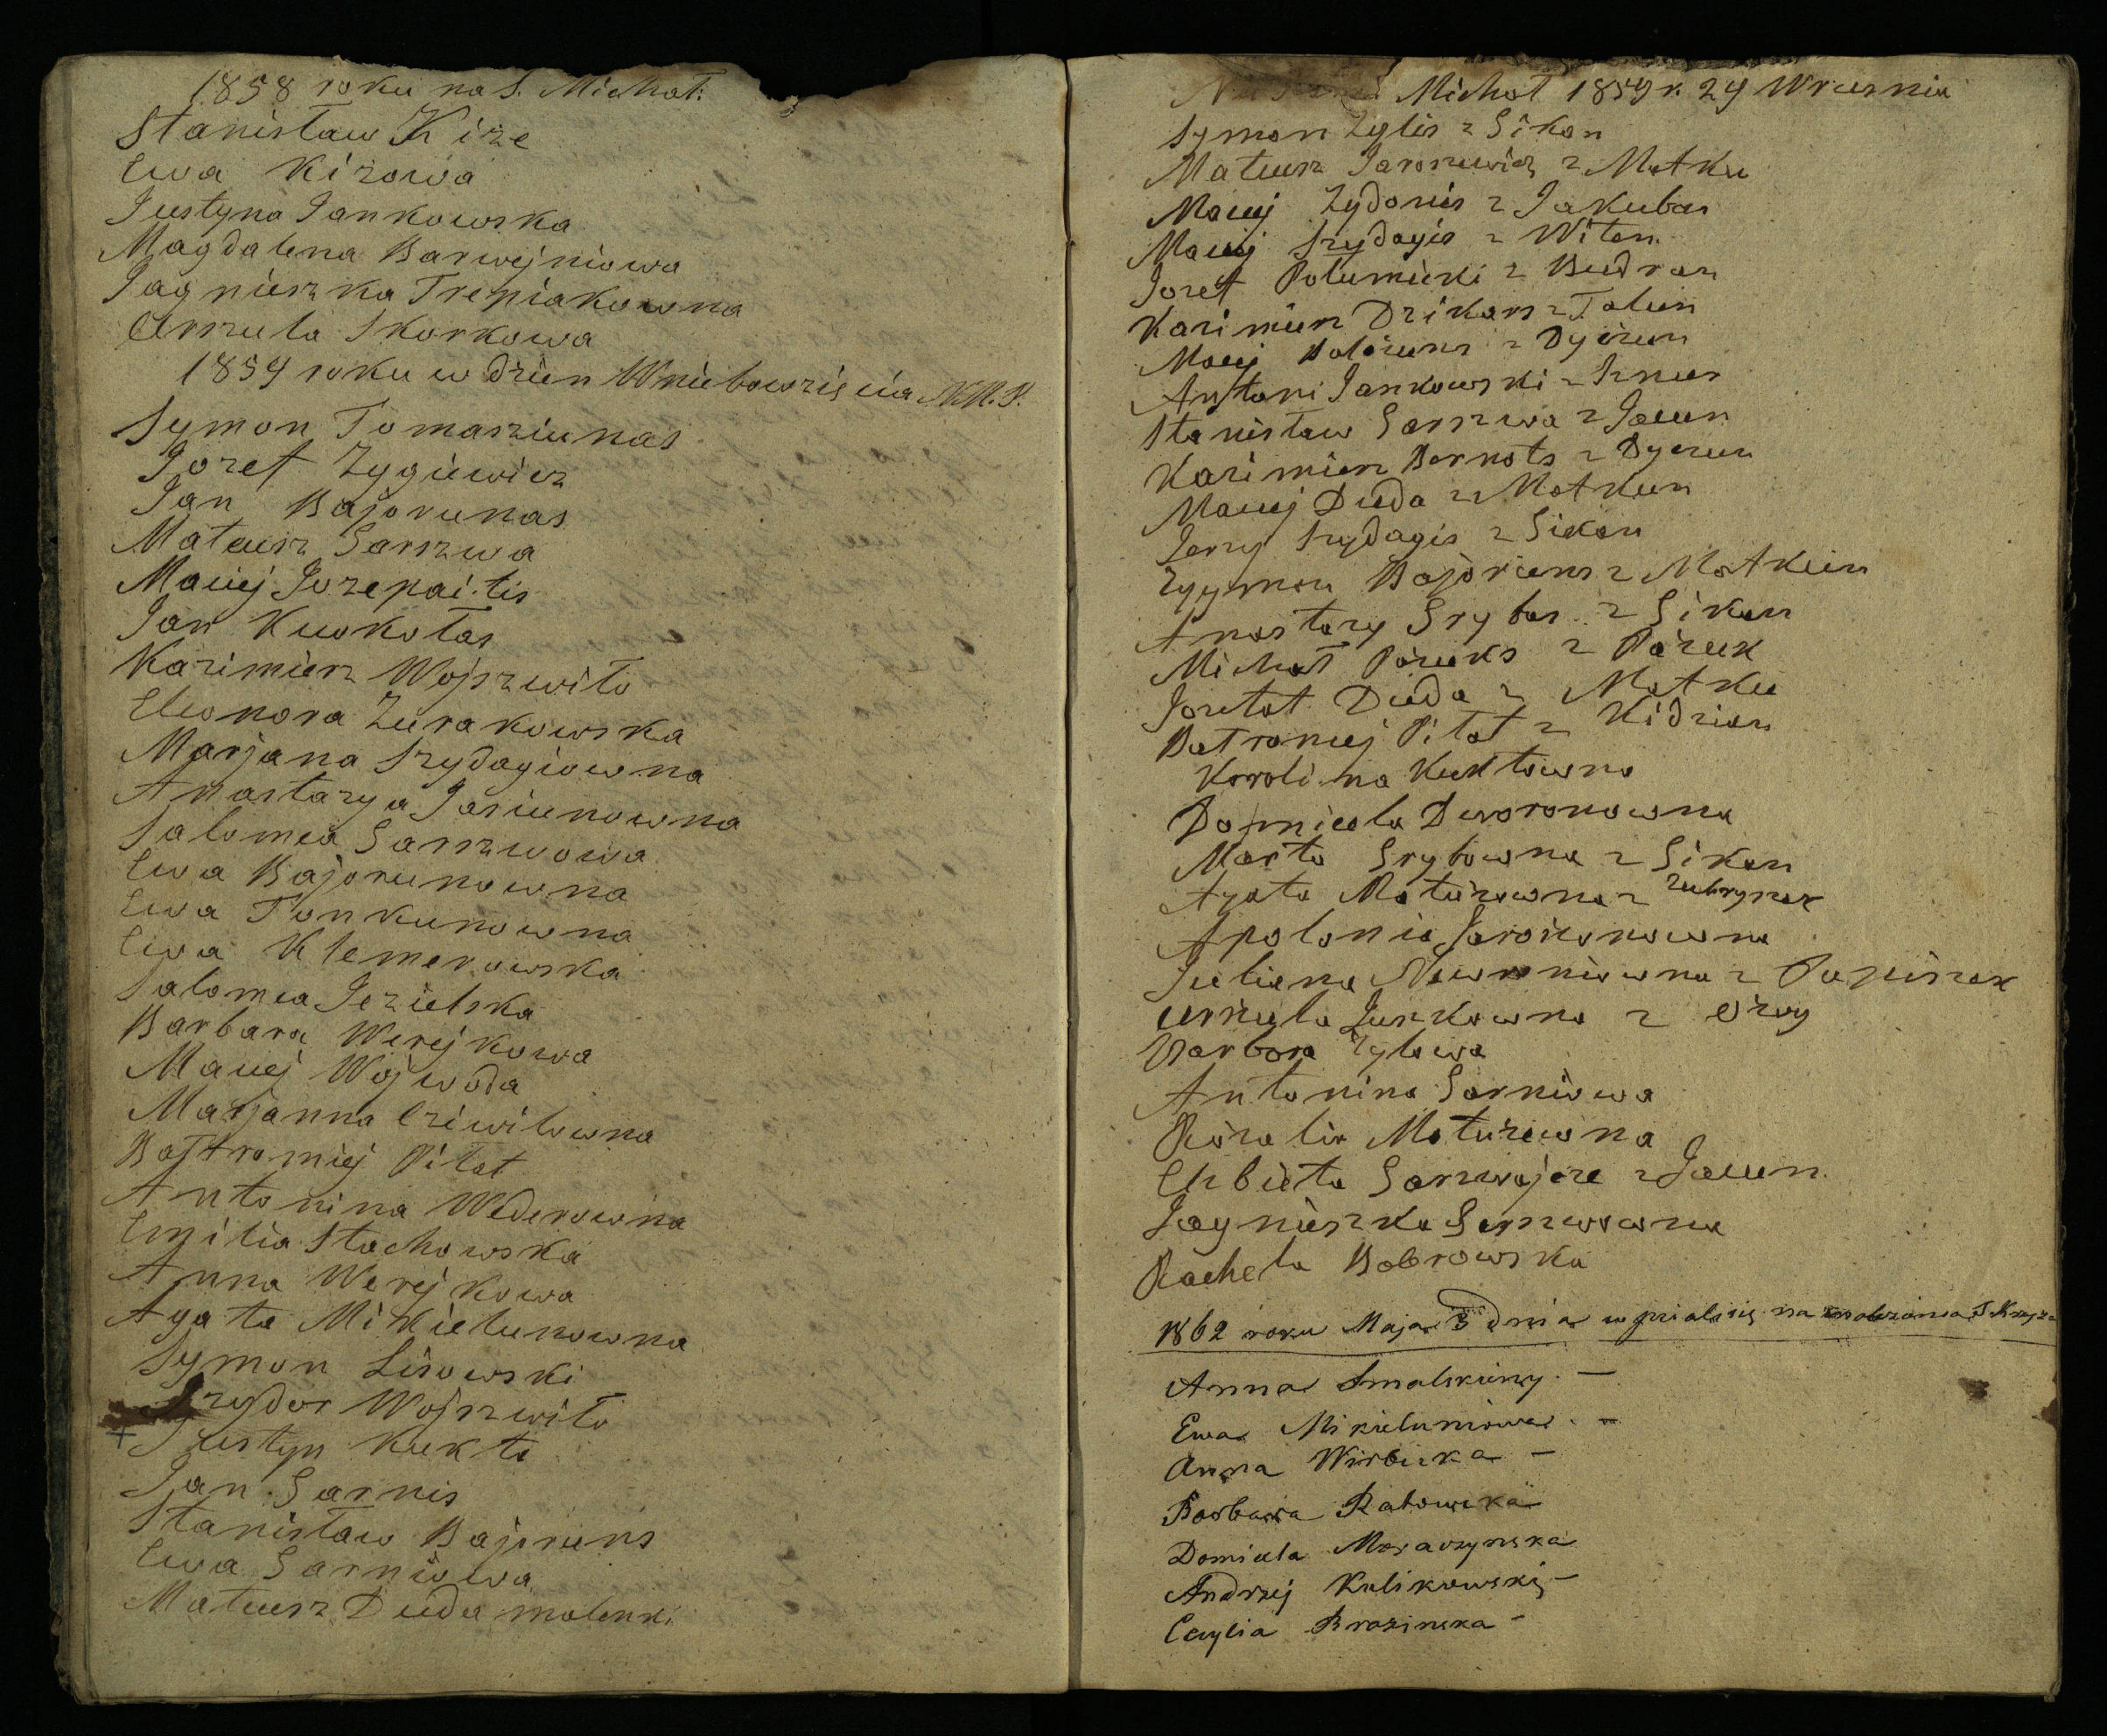 1858 roku na S. Michał:
Stanisław Kize
Ewa Kizowa
Justyna Jankowska
Magdalena Barwejniowa
Jagnieszka Trepiakowna
Urszula Skorkowa
1859 roku w dzien Wniebowzięcia N.M.P.
Symon Tomasziunas
Jozef Zygiewicz
Jan Bajorunas
Mateusz Sarszwa
Maciej Jozepaitis
Jan Kwokołas
Kazimierz Wojszwiło
Eleonora Zurakowska
Marjana Szydagiowna
Anastazya Jasiunowna
Salomea Sarszwowa
Ewa Bajorunowna
Ewa Tonkunowna
Ewa Klemerowska
Salomea Jezielska
Barbara Werejkowa
Maciej Wojwoda
Marjanna Cziwilowna
Bałtromiej Piłat
Antonina Wederowna
Emilia Stachowska
Anna Werejkowa
Agata Mikielunowna
Symon Lisowski
Izydor Wojszwiło
Justyn Kukta
Jan Sarnis
Stanisław Bajoruns
Ewa Sarniowa
Mateusz Duda malenki
Michał 1859 r. 29 Wrzesnia
Symon Zylis z Sikan
Mateusz Jaroszewicz z Matku
Maciej Zydonis z Jakuban
Maciej Szydagis z Witan
Jozef Połumicki z Budran
Kazimierz Dzikars z Talun
Maciej z
Antoni Jankowski z
Stanisław Sarszwa z Jawn
Kazimierz Bernots z
Maciej Duda z Matkun
Jerzy Szydagis z Sikan
Zygmon Bajoriuns z Matkun
Anastazy Grybas z Sikan
Michał Pożuks z Pożuk
Jozefat Duda z Matku
Bałtromiej Piłat z Kidzian
Karolina Kukłowna
Domicela Dworonowna
Marta Grybowna z Sikan
Agata Matuzowna z Zubryszek
Apolonia
Juliana z
Urszula Zurkowna z
Barbara Zylowa
Antonina Sarniowa
Rozalia Matuzewna
Elzbieta z Jawn.
Jagnieszka Sarszwowna
Rachela Bobrowska
1862 roku Maja 3 dnia wpisali się na
Anna Smalskiuwy. —
Ewa Mikieluniowa. —
Anna Wirbicka —
Barbara Ratowska
Domicela Moraczynska
Andrzej Kulikowski —
Cecylia Brazinska —